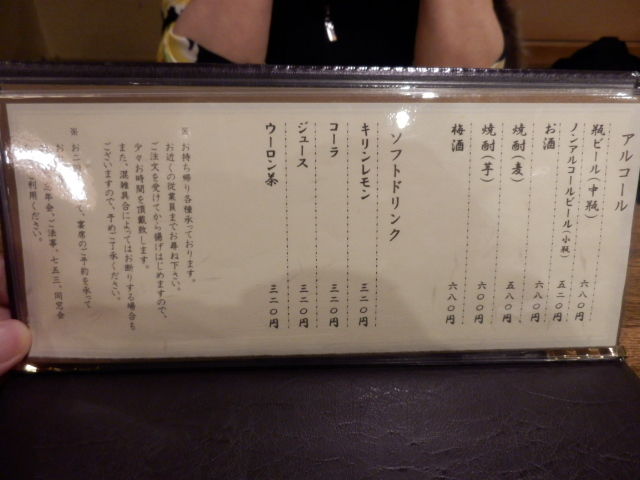 アルコール
瓶ビール(中瓶) 六八〇円
ノンアルコールビール(小瓶) 五二〇円
お酒 六八〇円
焼酎(麦) 五八〇円
焼酎(芋) 六〇〇円
梅酒 六八〇円
ソフトドリンク
キリンレモン 三二〇円
コーラ 三二〇円
ジュース 三二〇円
ウーロン茶 三二〇円
※ お持ち帰り各種承っております。
お近くの従業員までお尋ね下さい。
ご注文を受けてから揚げはじめますので、
少々お時間を頂戴致します。
また、混雑具合によってはお断りする場合も
ございますので、予めご了承ください。
※ お二階 て、宴席のご予約を承って
お 年会、ご法事、七五三、同窓会
利用ください。